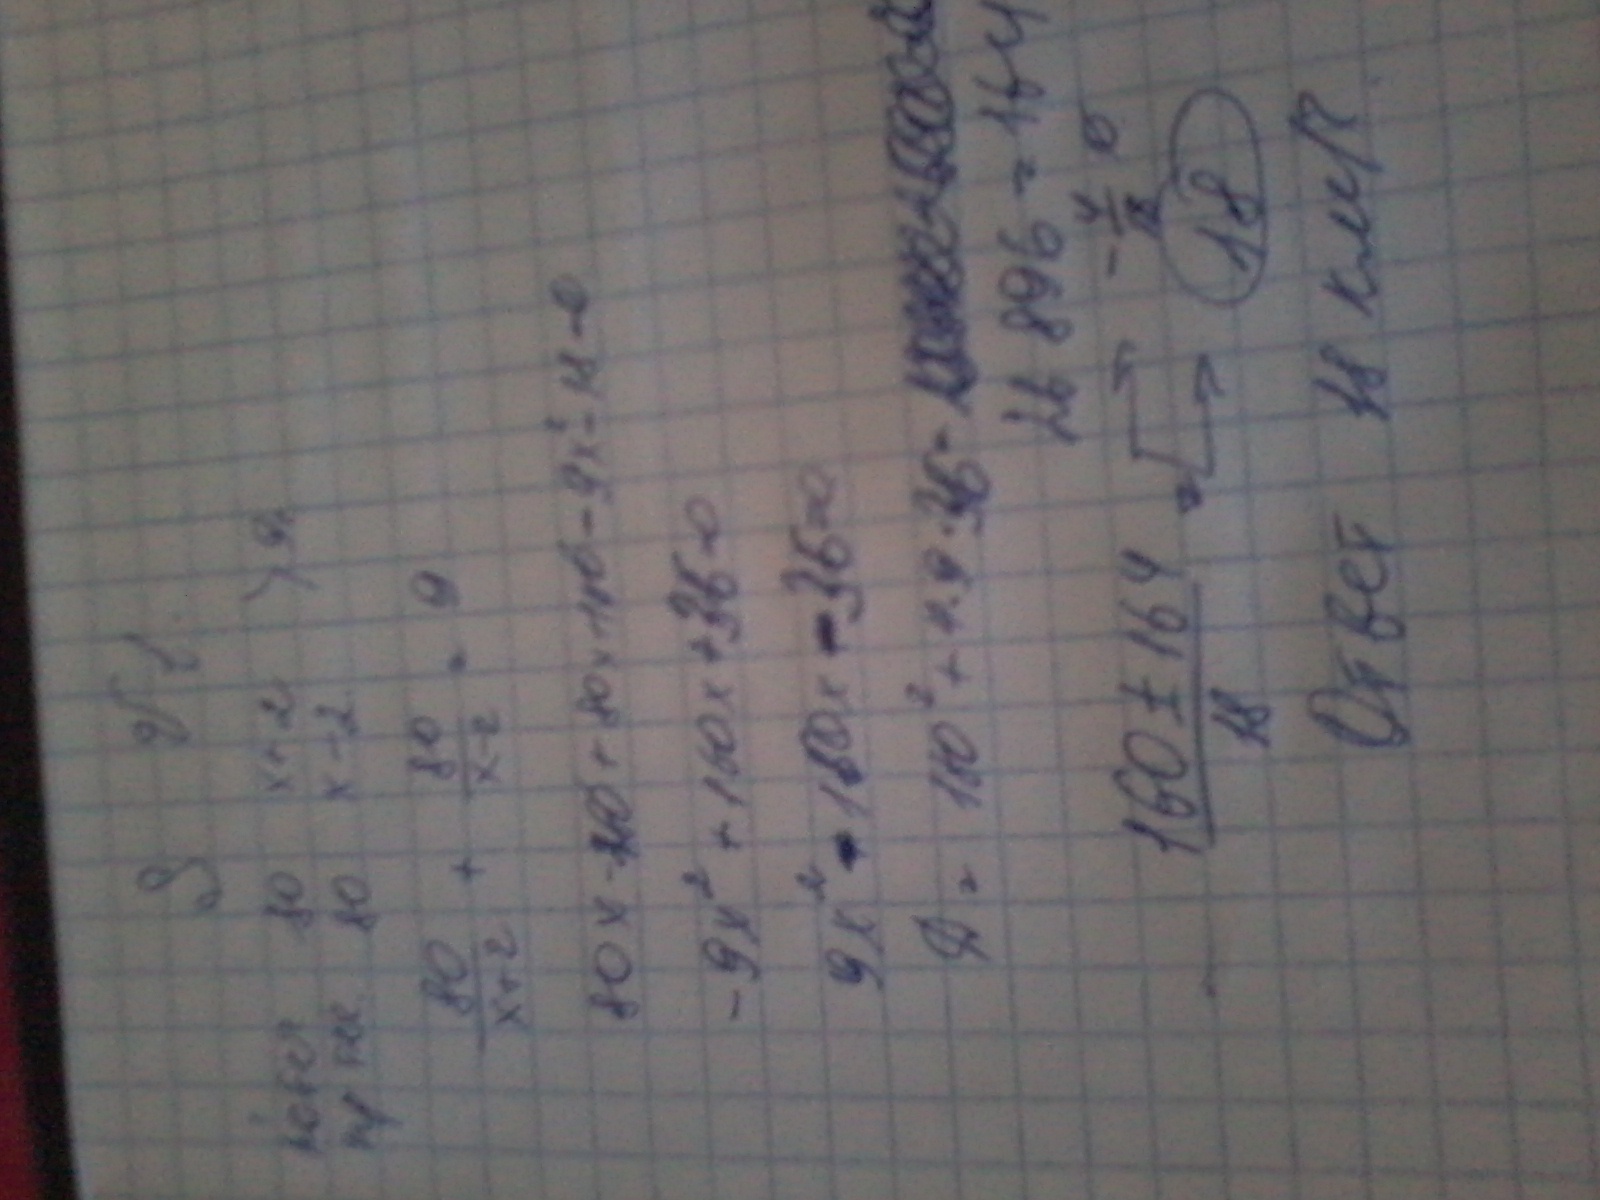 S V t
по теч 80 x+2 > 9ч
пр теч. 80 x-2
80/x+2 + 80/x-2 = 9
80x - 160 + 80x + 160 - 9x² - 36 = 0
-9x² + 160x + 36 = 0
9x² - 160x - 36 = 0
D = 160² + 4·9·36 =
26 896 = 164
160 ± 164 / 18 = - 4/18 ∅
18
Ответ 18 км/ч.